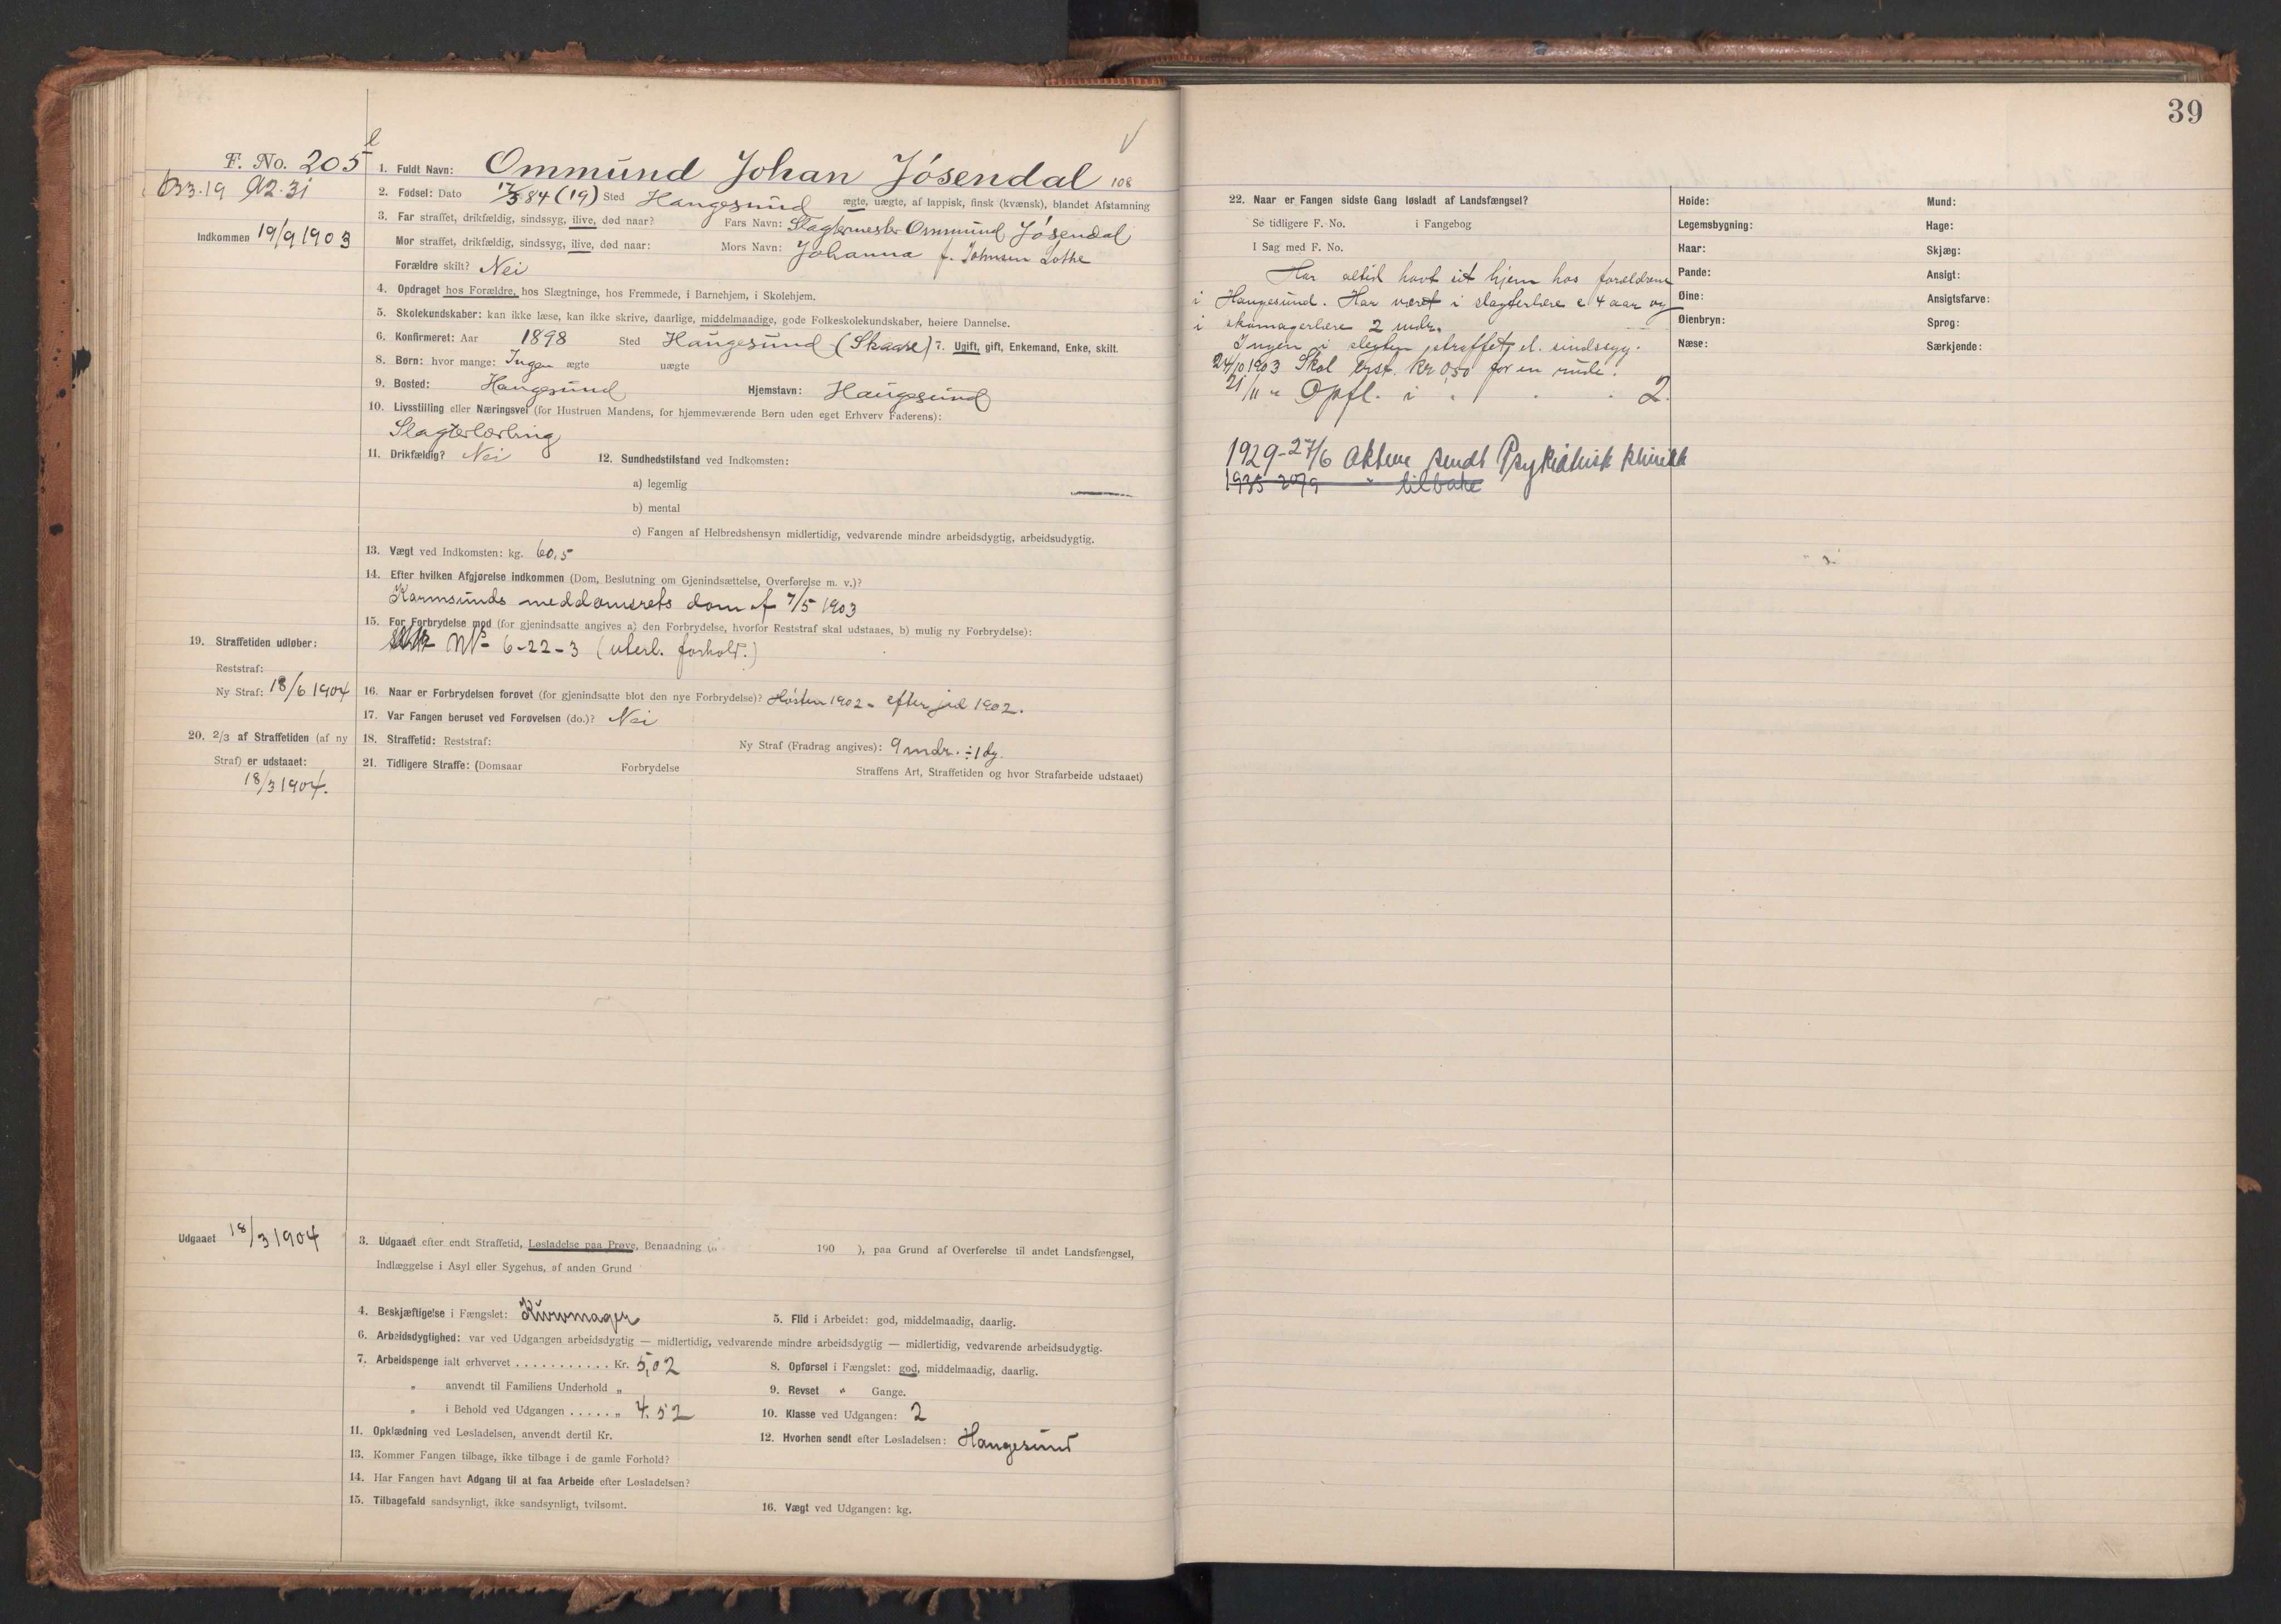 39
F. No. 205
B3.19 A2.31
Indkommen 19/9 1903
1. Fuldt Navn: Ommund Johan Jósendal 108
2. Fødsel: Dato 17/3 84 (19) Sted Haugesund ægte, uægte, af lappisk, finsk (kvænsk), blandet Afstamning
3. Far straffet, drikfældig, sindssyg, ilive, død naar? Fars Navn: Slagtermester Ommund Jósendal
Mor straffet, drikfældig, sindssyg, ilive, død naar: Mors Navn: Johanna f. Johnsen Lothe
Forældre skilt? Nei
4. Opdraget hos Forældre, hos Slægtninge, hos Fremmede, i Barnehjem, i Skolehjem.
5. Skolekundskaber: kan ikke læse, kan ikke skrive, daarlige, middelmaadige, gode Folkeskolekundskaber, høiere Dannelse.
6. Konfirmeret: Aar 1898 Sted Haugesund (Skaare) 7. Ugift, gift, Enkemand, Enke, skilt.
8. Børn: hvor mange: Ingen ægte uægte
9. Bosted: Haugesund Hjemstavn: Haugesund
10. Livsstilling eller Næringsvei (for Hustruen Mandens, for hjemmeværende Børn uden eget Erhverv Faderens):
Slagterlærling
11. Drikfældig? Nei 12. Sundhedstilstand ved Indkomsten:
a) legemlig
b) mental
c) Fangen af Helbredshensyn midlertidig, vedvarende mindre arbeidsdygtig, arbeidsudygtig.
13. Vægt ved Indkomsten: kg. 60,5
14. Efter hvilken Afgjørelse indkommen (Dom, Beslutning om Gjenindsættelse, Overførelse m. v.)?
Karmsunds meddomsrets dom af 7/5 1903
15. For Forbrydelse mod (for gjenindsatte angives a) den Forbrydelse, hvorfor Reststraf skal udstaaes, b) mulig ny Forbrydelse):
6-22-3 (uterl. forhold.)
19. Straffetiden udløber:
Reststraf:
Ny Straf: 18/6 1904
16. Naar er Forbrydelsen forøvet (for gjenindsatte blot den nye Forbrydelse)? Hósten 1902 - efter jul 1902.
17. Var Fangen beruset ved Forøvelsen (do.)? Nei
20. 2/3 af Straffetiden (af ny
Straf) er udstaaet:
18/3 1904.
18. Straffetid: Reststraf: Ny Straf (Fradrag angives): 9 mdr. ÷ 1 dg.
21. Tidligere Straffe: (Domsaar Forbrydelse Straffens Art, Straffetiden og hvor Strafarbeide udstaaet)
Udgaaet 18/3 1904
3. Udgaaet efter endt Straffetid, Løsladelse paa Prøve, Benaadning ( 190 ), paa Grund af Overførelse til andet Landsfængsel,
Indlæggelse i Asyl eller Sygehus, af anden Grund
4. Beskjæftigelse i Fængslet: Kurvmager 5. Flid i Arbeidet: god, middelmaadig, daarlig.
6. Arbeidsdygtighed: var ved Udgangen arbeidsdygtig — midlertidig, vedvarende mindre arbeidsdygtig — midlertidig, vedvarende arbeidsudygtig.
7. Arbeidspenge ialt erhvervet . . . . . . . . . . . Kr. 5,02 8. Opførsel i Fængslet: god, middelmaadig, daarlig.
" anvendt til Familiens Underhold " 9. Revset " Gange.
" i Behold ved Udgangen . . . . . " 4.52 10. Klasse ved Udgangen: 2
11. Opklædning ved Løsladelsen, anvendt dertil Kr. 12. Hvorhen sendt efter Løsladelsen: Haugesund
13. Kommer Fangen tilbage, ikke tilbage i de gamle Forhold?
14. Har Fangen havt Adgang til at faa Arbeide efter Løsladelsen?
15. Tilbagefald sandsynligt, ikke sandsynligt, tvilsomt. 16. Vægt ved Udgangen: kg.
22. Naar er Fangen sidste Gang løsladt af Landsfængsel?
Se tidligere F. No. i Fangebog
I Sag med F. No.
Har altid havt sit hjem hos forældrene
i Haugesund. Har været i slagterlære c 4 aar og
i skomagerlære 2 mdr.
Ingen i slegten straffet el. sindssyg.
24/10 1903 Skal erst. Kr 0,50 for en rude.
21/11 " Opfl. i " 2.
1929-27/6 Aktene sendt Psykiatrisk klinikk
1935 20/9 " tilbake
Høide: Mund:
Legemsbygning: Hage:
Haar: Skjæg:
Pande: Ansigt:
Øine: Ansigtsfarve:
Øienbryn: Sprog:
Næse: Særkjende: